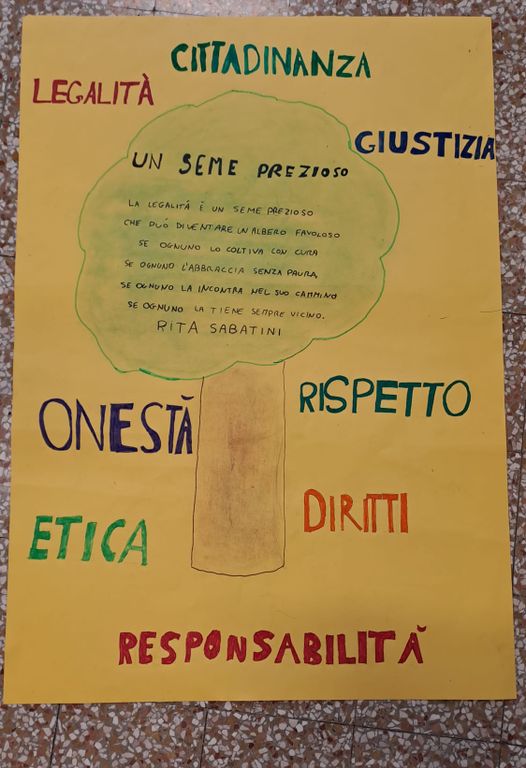 CITTADINANZA
LEGALITÀ
GIUSTIZIA
UN SEME PREZIOSO
LA LEGALITÁ È UN SEME PREZIOSO
CHE PUÓ DIVENTARE UN ALBERO FAVOLOSO
SE OGNUNO LO COLTIVA CON CURA
SE OGNUNO L'ABBRACCIA SENZA PAURA,
SE OGNUNO LA INCONTRA NEL SUO CAMMINO
SE OGNUNO LA TIENE SEMPRE VICINO.
RITA SABATINI
RISPETTO
ONESTÀ
DIRITTI
ETICA
RESPONSABILITÀ